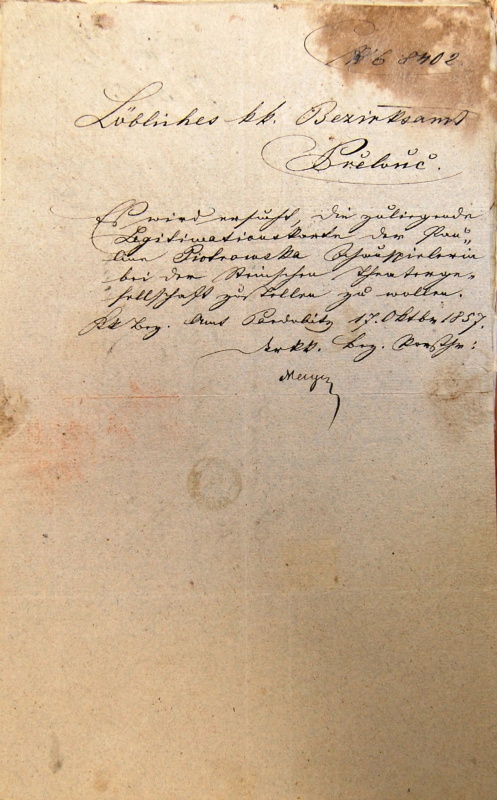 N 6 8402
Löbliches kk. Bezirksamt
Přelouč.
Es wird ersucht, die zuliegende
Legitimationskarte der Pau„
line Piotrowska Schauspielerin
bei der Stein'schen Theaterge„
sellschaft zustellen zu wollen.
KK Bez. Amt 17. Oktbr 1857.
Der kk. Bez. Vorsthr: